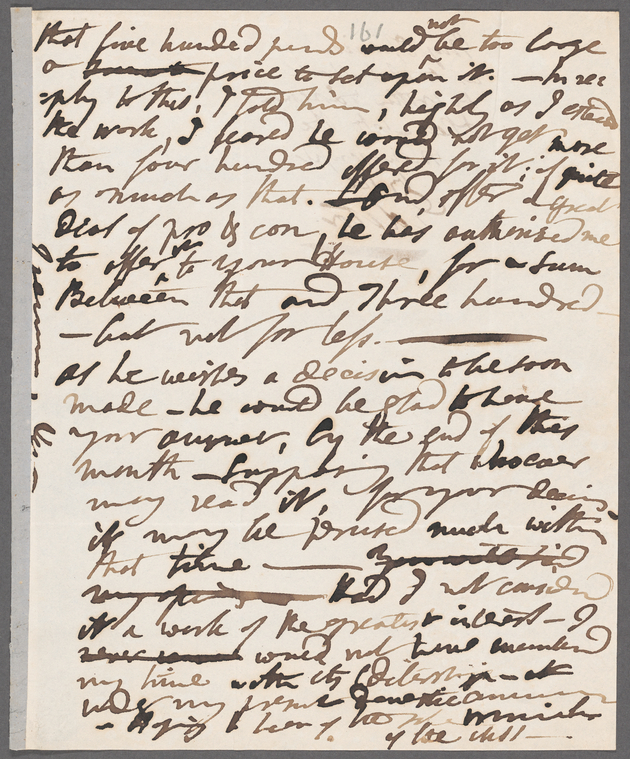 161
that five hundred pounds would not be too large
a price to set upon it. — In re-
-ply to this, I told him, highly as I esteemed
the work, I feared he would not get more
than four hundred offered for it; if quite
as much as that. — And, after a great
deal of pro & con, he has authorised me
to offer it to your House, for a sum
Between that and Three hundred —
— but not for less. —
as he wishes a decision to be soon
made — he would be glad to have
your answer, by the end of this
month — Supposing that whoever
may read it, for your decision
it may be perused much within
that time —
Had I not considered
it a work of the greatest interest — I
would not have
my time with its Editorship — at
under my present
— Hoping to hear